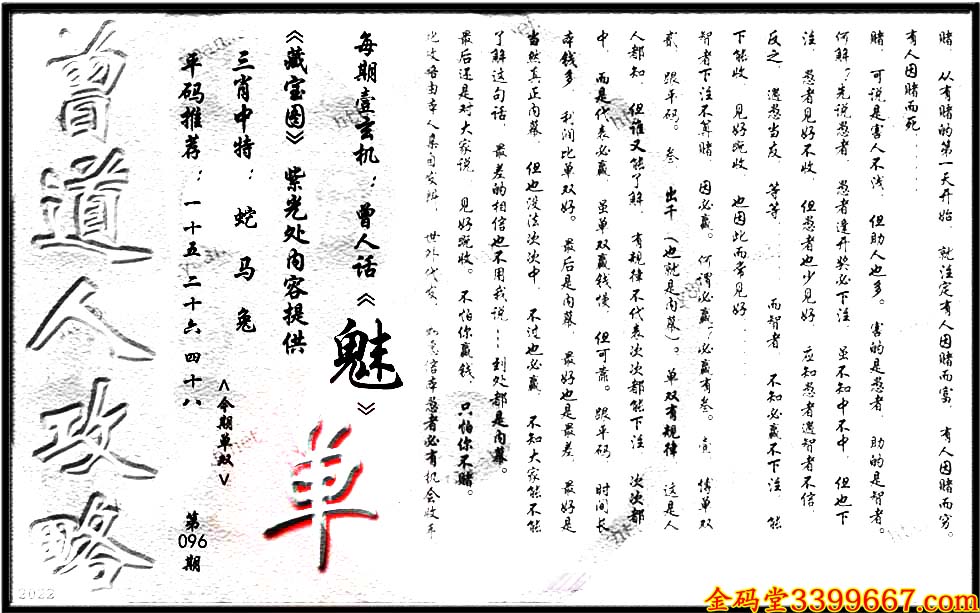 赌．从有赌的第一天开始．就注定有人因赌而富．有人因赌而穷。
有人因赌而死……
赌．可说是害人不浅．但助人也多。害的是愚者．助的是智者。
何解？先说愚者．愚者逢开奖必下注．虽不知中不中．但也下
注．愚者见好不收．但愚者也少见好．应知愚者遇智者不信．
反之．遇愚当友．等等……而智者．不知必赢不下注．能
下能收．见好既收．也因此而常见好……
智者下注不算赌．因必赢。何谓必赢？必赢有叁。壹．博单双
贰．跟平码。叁．出千（也就是内幕）。单双有规律．这是人
人都知．但谁又能了解．有规律不代表次次都能下注．次次都
中．而是代表必赢．虽单双赢钱慢．但可靠。跟平码．时间长
本钱多．利润比单双好。最后是内幕．最好也是最差．最好是
当然真正内幕．但也没法次次中．不过也必赢．不知大家能不
了解这句话．最差的相信也不用我说……到处都是内幕。
最后还是对大家说．见好既收。不怕你赢钱．只怕你不赌。
此攻略由本人集自发照．世外代友．愚者必有机会收
每期壹玄机：曾人话《魅》
《藏宝图》紫光处内容提供
三肖中特：蛇 马 兔
平码推荐：一十五 二十六 四十八
<今期单双>
单
第096期
曾道人攻略
2022
金码堂3399667.com